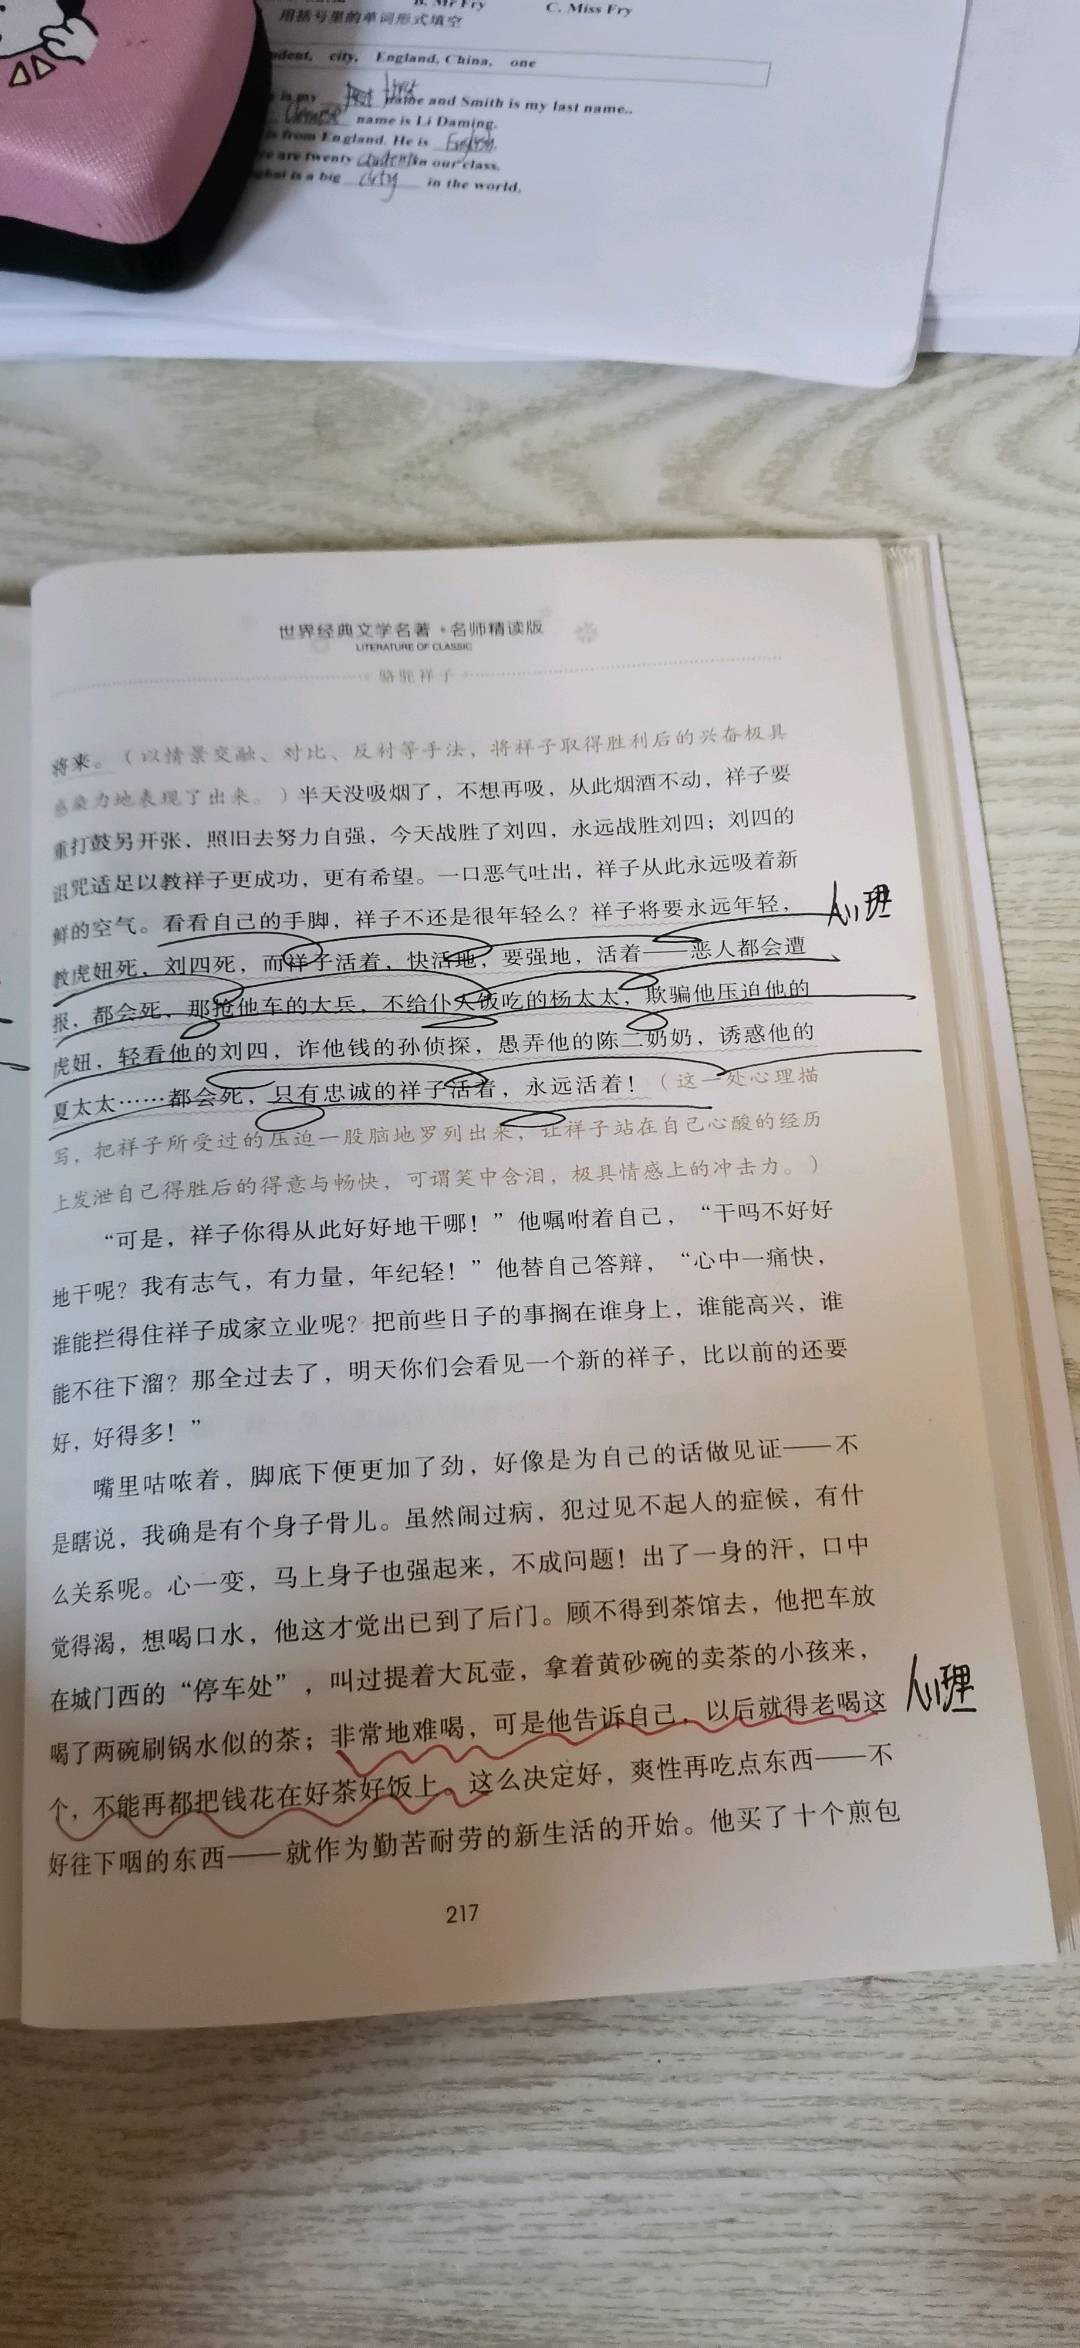 B. Mr Fry C. Miss Fry
用括号里的单词形式填空
city, England, China, one
is my first name and Smith is my last name..
Chinese name is Li Daming.
is from England. He is English.
are twenty students in our class.
is a big city in the world.
世界经典文学名著·名师精读版
LITERATURE OF CLASSIC
骆驼祥子
将来。（以情景交融、对比、反衬等手法，将祥子取得胜利后的兴奋极具
感染力地表现了出来。）半天没吸烟了，不想再吸，从此烟酒不动，祥子要
重打鼓另开张，照旧去努力自强，今天战胜了刘四，永远战胜刘四；刘四的
诅咒适足以教祥子更成功，更有希望。一口恶气吐出，祥子从此永远吸着新
鲜的空气。看看自己的手脚，祥子不还是很年轻么？祥子将要永远年轻，
心理
教虎妞死，刘四死，而祥子活着，快活地，要强地，活着——恶人都会遭
报，都会死，那抢他车的大兵，不给仆人饭吃的杨太太，欺骗他压迫他的
虎妞，轻看他的刘四，诈他钱的孙侦探，愚弄他的陈二奶奶，诱惑他的
夏太太……都会死，只有忠诚的祥子活着，永远活着！（这一处心理描
写，把祥子所受过的压迫一股脑地罗列出来，让祥子站在自己心酸的经历
上发泄自己得胜后的得意与畅快，可谓笑中含泪，极具情感上的冲击力。）
“可是，祥子你得从此好好地干哪！”他嘱咐着自己，“干吗不好好
地干呢？我有志气，有力量，年纪轻！”他替自己答辩，“心中一痛快，
谁能拦得住祥子成家立业呢？把前些日子的事搁在谁身上，谁能高兴，谁
能不往下溜？那全过去了，明天你们会看见一个新的祥子，比以前的还要
好，好得多！”
嘴里咕哝着，脚底下便更加了劲，好像是为自己的话做见证——不
是瞎说，我确是有个身子骨儿。虽然闹过病，犯过见不起人的症候，有什
么关系呢。心一变，马上身子也强起来，不成问题！出了一身的汗，口中
觉得渴，想喝口水，他这才觉出已到了后门。顾不得到茶馆去，他把车放
在城门西的“停车处”，叫过提着大瓦壶，拿着黄砂碗的卖茶的小孩来，
喝了两碗刷锅水似的茶；非常地难喝，可是他告诉自己，以后就得老喝这
心理
个，不能再都把钱花在好茶好饭上。这么决定好，爽性再吃点东西——不
好往下咽的东西——就作为勤苦耐劳的新生活的开始。他买了十个煎包
217